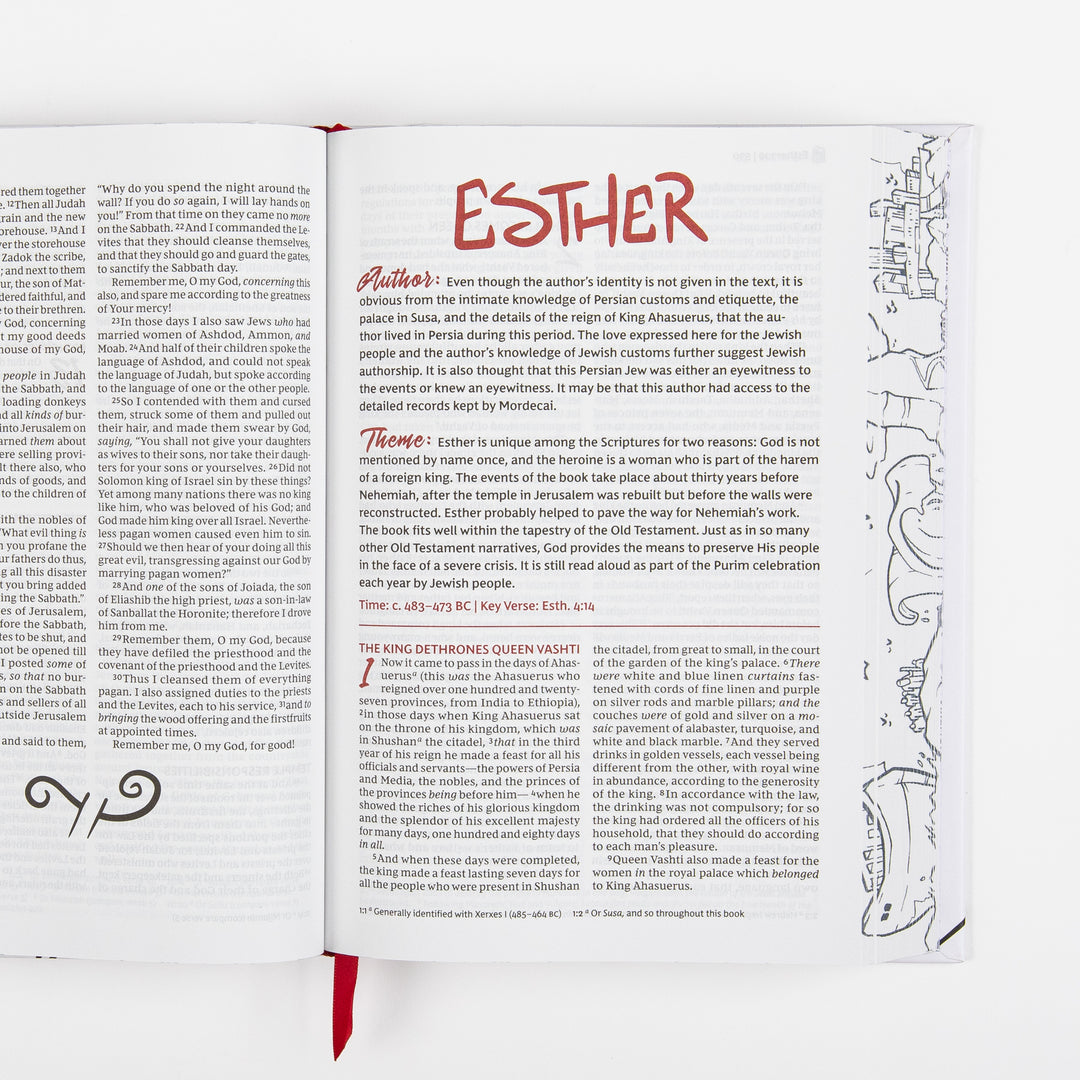 red them together
e. 12Then all Judah
rain and the new
orehouse. 13And I
ver the storehouse
Zadok the scribe,
; and next to them
ur, the son of Mat-
dered faithful, and
e to their brethren.
God, concerning
t my good deeds
house of my God,
people in Judah
the Sabbath, and
loading donkeys
nd all kinds of bur-
into Jerusalem on
arned them about
ere selling provi-
lt there also, who
nds of goods, and
to the children of
with the nobles of
"What evil thing is
you profane the
ur fathers do thus,
g all this disaster
t you bring added
ing the Sabbath."
es of Jerusalem,
fore the Sabbath,
tes to be shut, and
not be opened till
I posted some of
s, so that no bur-
n on the Sabbath
and sellers of all
utside Jerusalem
and said to them,
"Why do you spend the night around the
wall? If you do so again, I will lay hands on
you!" From that time on they came no more
on the Sabbath. 22And I commanded the Le-
vites that they should cleanse themselves,
and that they should go and guard the gates,
to sanctify the Sabbath day.
Remember me, O my God, concerning this
also, and spare me according to the greatness
of Your mercy!
23In those days I also saw Jews who had
married women of Ashdod, Ammon, and
Moab. 24And half of their children spoke the
language of Ashdod, and could not speak
the language of Judah, but spoke according
to the language of one or the other people.
25So I contended with them and cursed
them, struck some of them and pulled out
their hair, and made them swear by God,
saying, "You shall not give your daughters
as wives to their sons, nor take their daugh-
ters for your sons or yourselves. 26Did not
Solomon king of Israel sin by these things?
Yet among many nations there was no king
like him, who was beloved of his God; and
God made him king over all Israel. Neverthe-
less pagan women caused even him to sin.
27Should we then hear of your doing all this
great evil, transgressing against our God by
marrying pagan women?"
28And one of the sons of Joiada, the son
of Eliashib the high priest, was a son-in-law
of Sanballat the Horonite; therefore I drove
him from me.
29Remember them, O my God, because
they have defiled the priesthood and the
covenant of the priesthood and the Levites.
30Thus I cleansed them of everything
pagan. I also assigned duties to the priests
and the Levites, each to his service, 31and to
bringing the wood offering and the firstfruits
at appointed times.
Remember me, O my God, for good!
ESTHER
Author: Even though the author's identity is not given in the text, it is
obvious from the intimate knowledge of Persian customs and etiquette, the
palace in Susa, and the details of the reign of King Ahasuerus, that the au-
thor lived in Persia during this period. The love expressed here for the Jewish
people and the author's knowledge of Jewish customs further suggest Jewish
authorship. It is also thought that this Persian Jew was either an eyewitness to
the events or knew an eyewitness. It may be that this author had access to the
detailed records kept by Mordecai.
Theme: Esther is unique among the Scriptures for two reasons: God is not
mentioned by name once, and the heroine is a woman who is part of the harem
of a foreign king. The events of the book take place about thirty years before
Nehemiah, after the temple in Jerusalem was rebuilt but before the walls were
reconstructed. Esther probably helped to pave the way for Nehemiah's work.
The book fits well within the tapestry of the Old Testament. Just as in so many
other Old Testament narratives, God provides the means to preserve His people
in the face of a severe crisis. It is still read aloud as part of the Purim celebration
each year by Jewish people.
Time: c. 483–473 BC | Key Verse: Esth. 4:14
THE KING DETHRONES QUEEN VASHTI
1 Now it came to pass in the days of Ahas-
uerusa (this was the Ahasuerus who
reigned over one hundred and twenty-
seven provinces, from India to Ethiopia),
2in those days when King Ahasuerus sat
on the throne of his kingdom, which was
in Shushana the citadel, 3that in the third
year of his reign he made a feast for all his
officials and servants—the powers of Persia
and Media, the nobles, and the princes of
the provinces being before him— 4when he
showed the riches of his glorious kingdom
and the splendor of his excellent majesty
for many days, one hundred and eighty days
in all.
5And when these days were completed,
the king made a feast lasting seven days for
all the people who were present in Shushan
the citadel, from great to small, in the court
of the garden of the king's palace. 6There
were white and blue linen curtains fas-
tened with cords of fine linen and purple
on silver rods and marble pillars; and the
couches were of gold and silver on a mo-
saic pavement of alabaster, turquoise, and
white and black marble. 7And they served
drinks in golden vessels, each vessel being
different from the other, with royal wine
in abundance, according to the generosity
of the king. 8In accordance with the law,
the drinking was not compulsory; for so
the king had ordered all the officers of his
household, that they should do according
to each man's pleasure.
9Queen Vashti also made a feast for the
women in the royal palace which belonged
to King Ahasuerus.
1:1 a Generally identified with Xerxes I (485–464 BC) 1:2 a Or Susa, and so throughout this book